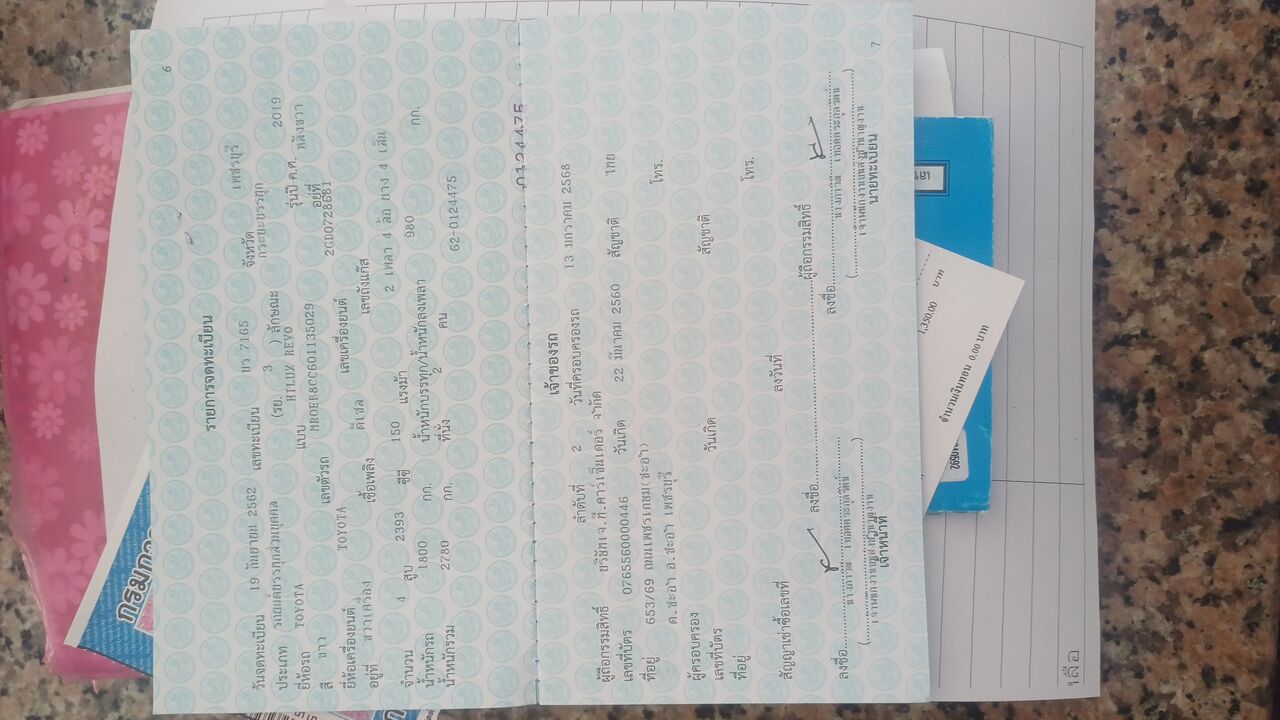 6
รายการจดทะเบียน
วันจดทะเบียน 19 กันยายน 2562 เลขทะเบียน ขร 7165 จังหวัด เพชรบุรี
ประเภท รถยนต์บรรทุกส่วนบุคคล (รย. 3 ) ลักษณะ กระบะบรรทุก
ยี่ห้อรถ TOYOTA แบบ HILUX REVO รุ่นปี ค.ศ. 2019
สี ขาว เลขตัวรถ MROEB8CC601135029 อยู่ที่ หลังขวา
ยี่ห้อเครื่องยนต์ TOYOTA เลขเครื่องยนต์ 2GD0728681
อยู่ที่ ขวาเครื่อง เชื้อเพลิง ดีเซล เลขถังแก๊ส
จำนวน 4 สูบ 2393 ซีซี 150 แรงม้า 2 เพลา 4 ล้อ ยาง 4 เส้น
น้ำหนักรถ 1800 กก. น้ำหนักบรรทุก/น้ำหนักลงเพลา 980 กก.
น้ำหนักรวม 2780 กก. ที่นั่ง 2 คน 62-0124475
0124475
เจ้าของรถ
ลำดับที่ 2 วันที่ครอบครองรถ 13 มกราคม 2568
ผู้ถือกรรมสิทธิ์ บริษัทเจ.ที.คาร์เซ็นเตอร์ จำกัด
เลขที่บัตร 0765560000446 วันเกิด 22 มีนาคม 2560 สัญชาติ ไทย
ที่อยู่ 653/69 ถนนเพชรเกษม(ชะอำ) โทร.
ต.ชะอำ อ.ชะอำ เพชรบุรี
ผู้ครอบครอง
เลขที่บัตร วันเกิด สัญชาติ
ที่อยู่ โทร.
สัญญาเช่าซื้อเลขที่ ลงวันที่
ลงชื่อ ผู้ถือกรรมสิทธิ์
ลงชื่อ ลงชื่อ
เจ้าหน้าที่ นายทะเบียน
7
กรมการ
1,350.00 บาท
จำนวนเงินทอน 0.00 บาท
เลือ